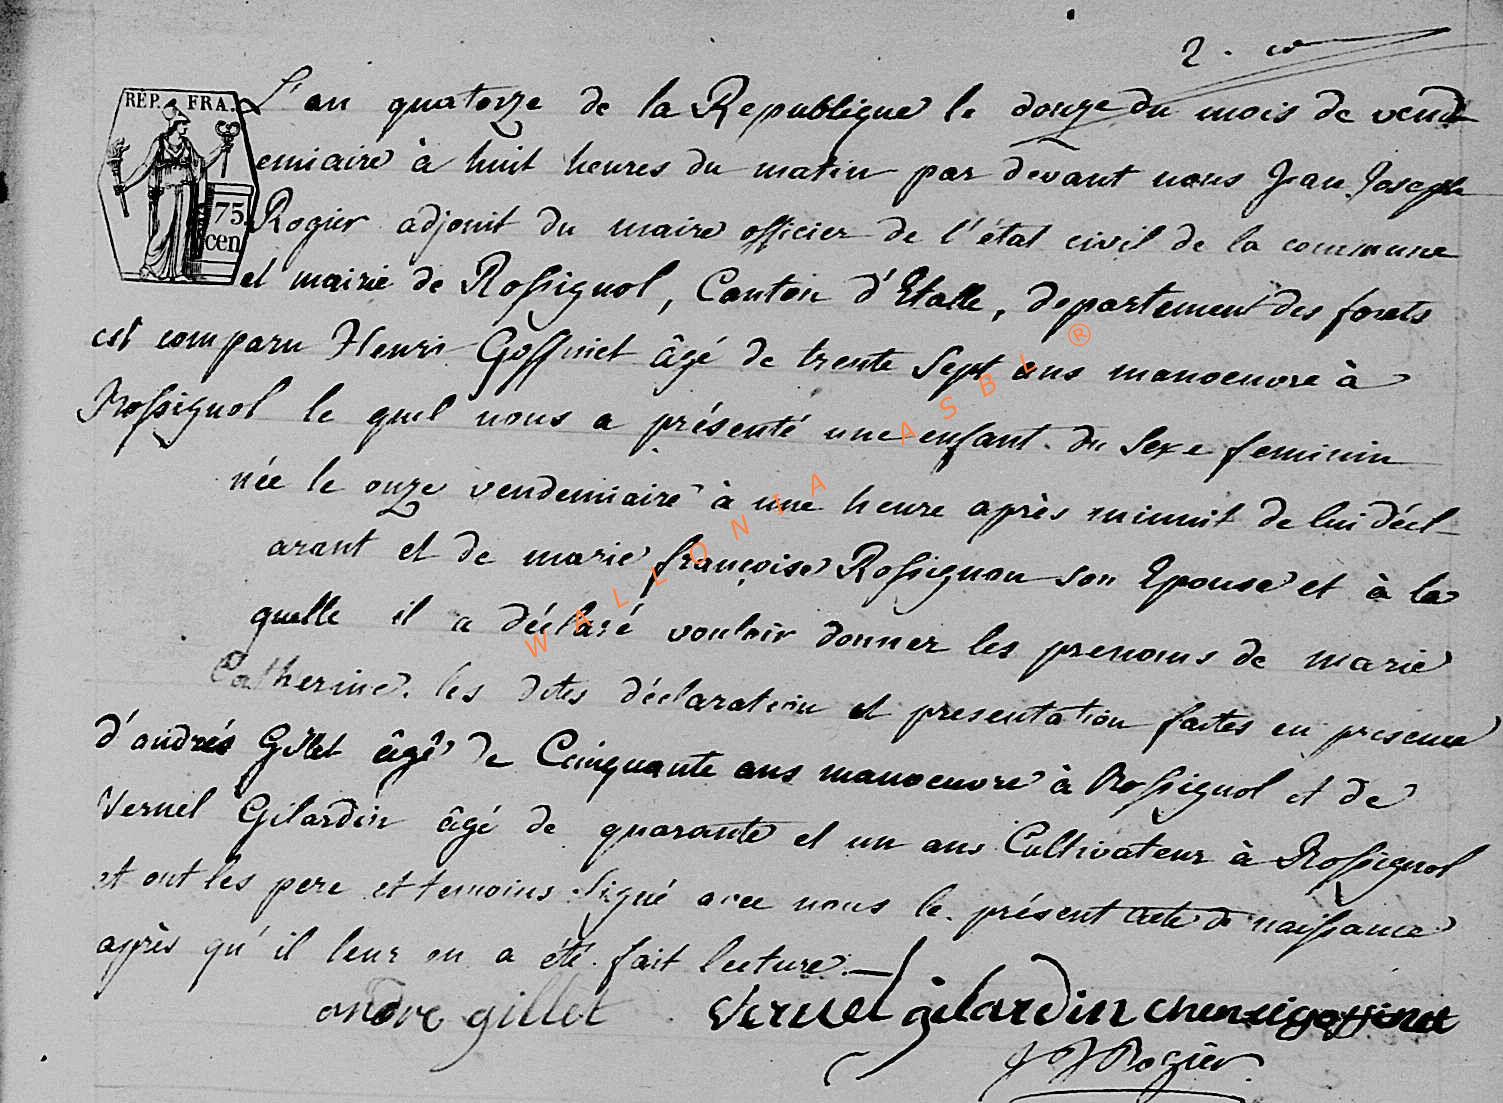 2.
RÉP. FRA.
75.
cen
L'an quatorze de la Republique le douze du mois de vend
emiaire à huit heures du matin par devant nous Jean Joseph
Rogier adjoint du maire officier de l'état civil de la commune
et mairie de Rossignol, Canton d'Etalle, departement des forets
est comparu Henri Goffinet âgé de trente sept ans manoeuvre à
Rossignol le quel nous a présenté une enfant du sexe feminin
née le onze vendemiaire à une heure après minuit de lui décl-
arant et de marie françoise Rossignon son Epouse et à la
quelle il a déclaré vouloir donner les prenoms de marie
Catherine. les dites déclaration et presentation faites en presence
d'andrés Gillet âgé de Cinquante ans manoeuvre à Rossignol et de
Vernel Gilardin âgé de quarante et un ans Cultivateur à Rossignol
et ont les pere et temoins signé avec nous le présent acte de naissance
après qu'il leur en a été fait lecture.
andre gillet Vernel gilardin henri goffinet
J J Rogier
WALLONIA ASBL ®